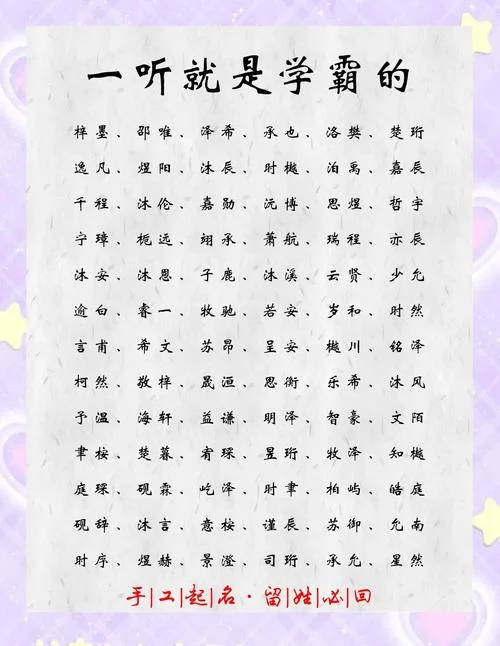 一听就是学霸的
梓墨、邵唯、泽希、承也、洛樊、楚珩
逸凡、煜阳、沐辰、时樾、泊禹、嘉辰
千程、沐伦、嘉勋、沅博、思煜、哲宇
宁璋、栀远、翊承、萧航、瑞程、亦辰
沐安、沐恩、子鹿、沐溪、云贤、少允
逾白、睿一、牧驰、若安、岁和、时然
言甫、希文、苏昂、呈安、樾川、铭泽
柯然、敬梓、晟洹、思衡、乐希、沐风
予温、海轩、益谦、明泽、智豪、文陌
聿桉、楚暮、宥琛、昱珩、牧泽、知樾
庭琛、砚霖、屹泽、时聿、柏屿、皓庭
砚辞、沐言、意桉、谨辰、苏御、允南
时序、煜赫、景澄、司珩、承允、星然
手|工|起|名·留|姓|必|回